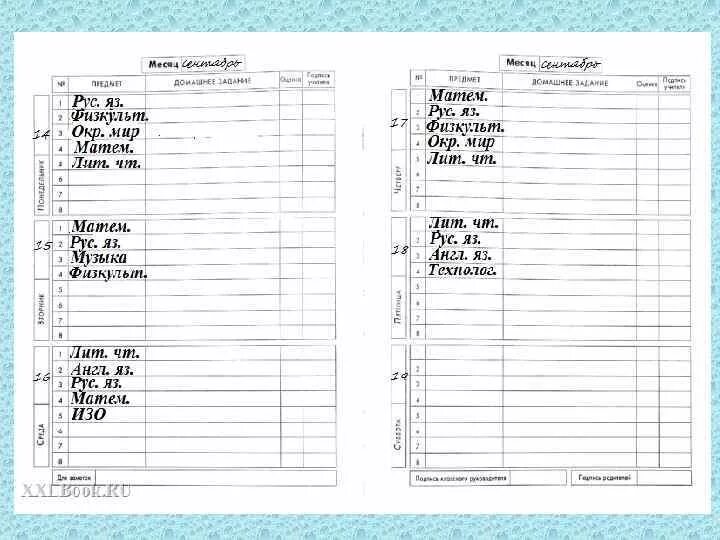 Месяц сентябрь
№ ПРЕДМЕТ ДОМАШНЕЕ ЗАДАНИЕ Оценка Подпись учителя
14 ПОНЕДЕЛЬНИК
1 Рус. яз.
2 Физкульт.
3 Окр. мир
4 Матем.
5 Лит. чт.
6
7
8
15 ВТОРНИК
1 Матем.
2 Рус. яз.
3 Музыка
4 Физкульт.
5
6
7
8
16 СРЕДА
1 Лит. чт.
2 Англ. яз.
3 Рус. яз.
4 Матем.
5 ИЗО
6
7
8
Для заметок
Месяц сентябрь
№ ПРЕДМЕТ ДОМАШНЕЕ ЗАДАНИЕ Оценка Подпись учителя
17 ЧЕТВЕРГ
1 Матем.
2 Рус. яз.
3 Физкульт.
4 Окр. мир
5 Лит. чт.
6
7
8
18 ПЯТНИЦА
1 Лит. чт.
2 Рус. яз.
3 Англ. яз.
4 Технолог.
5
6
7
8
19 СУББОТА
1
2
3
4
5
6
7
8
Подпись классного руководителя Подпись родителей
XXLBook.RU